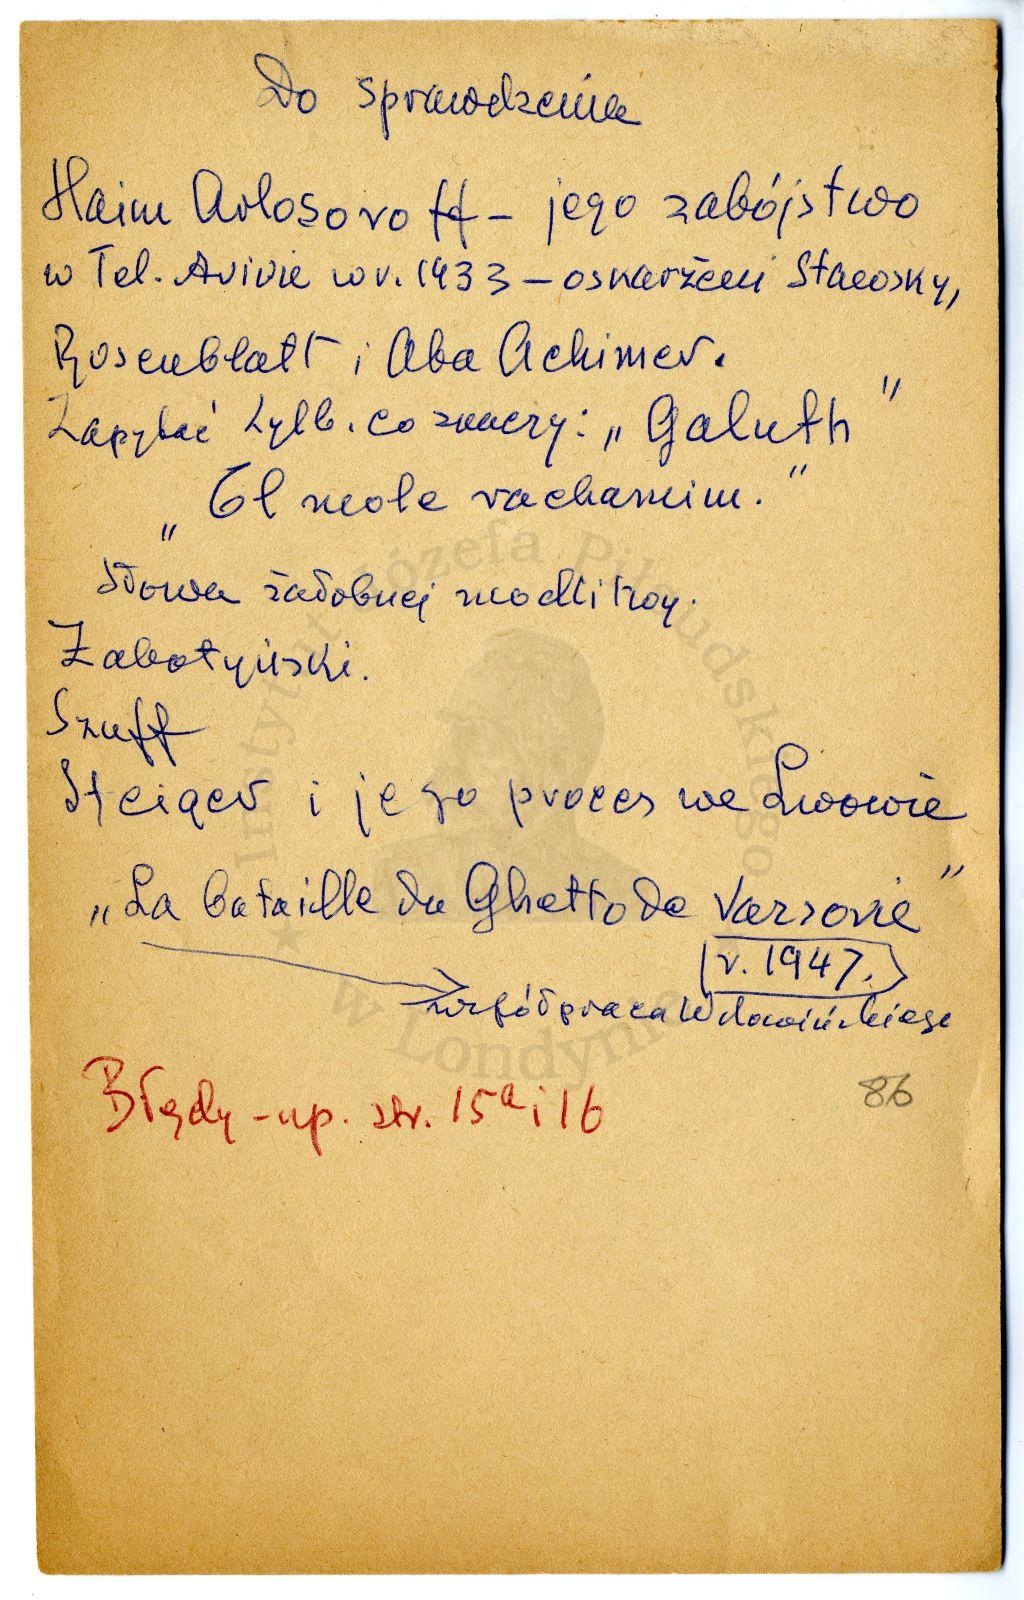 Do sprawdzenia
Haim Arlosoroff – jego zabójstwo
w Tel. Avivie w r. 1933 – oskarżeni Stavosky,
Rosenblatt i Aba Achimer.
Zapytać Sylb. co znaczy: „Galuth”
„El mole rachamim.”
słowa żałobnej modlitwy.
Żabotyński.
Szuff
Steiger i jego proces we Lwowie
„La bataille du Ghetto de Varsovie”
(r. 1947.)
współpraca Wdowińskiego
Błędy – np. str. 15a i 16
86
Instytut Józefa Piłsudskiego
w Londynie